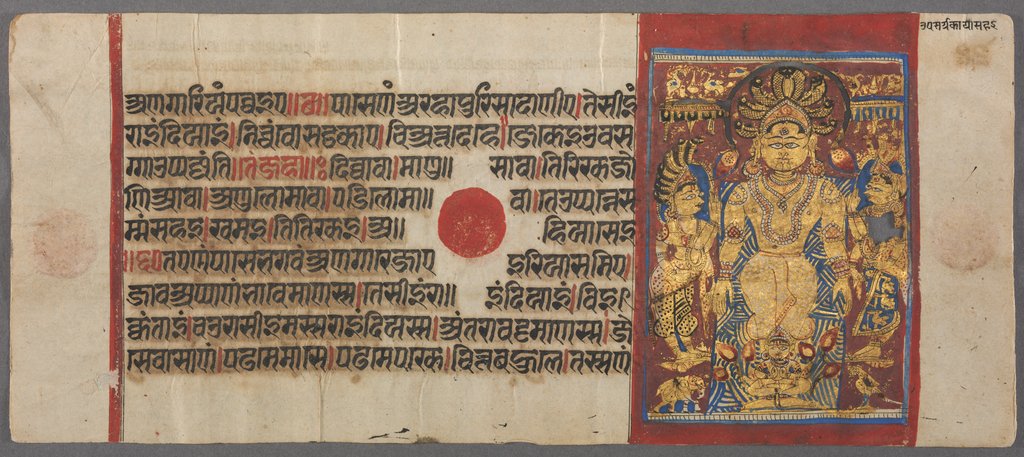 अणगारियं पव्वइए॥छ॥पासेणं अरहा पुरिसादाणीए।तेसीइं
राइंदियाइं।निच्चं वोसट्ठकाए।चियत्तदेहे।जे केइ उवस
ग्गा उप्पज्जंति॥तं जहा॥ दिव्वा वा।माणु॥ सा वा।तिरिक्खजो
णिआ वा।अणुलोमा वा।पडिलोमा॥ वा।ते उप्पन्ने स
म्मं सहइ।खमइ।तितिक्खइ।अ॥ हियासेइ
॥छ॥तएणं पासे भगवं अणगारे जाए इरियासमिए।
जाव अप्पाणं भावेमाणस्स।तेसीइं रा॥ इंदियाइं।विइ
क्कंताइं।चउरासीइमस्स राइंदियस्स।अंतरा वट्टमाणस्स।जे
से वासाणं।पढमे मासे।पढमे पक्खे।चित्तबहुले।तस्सणं